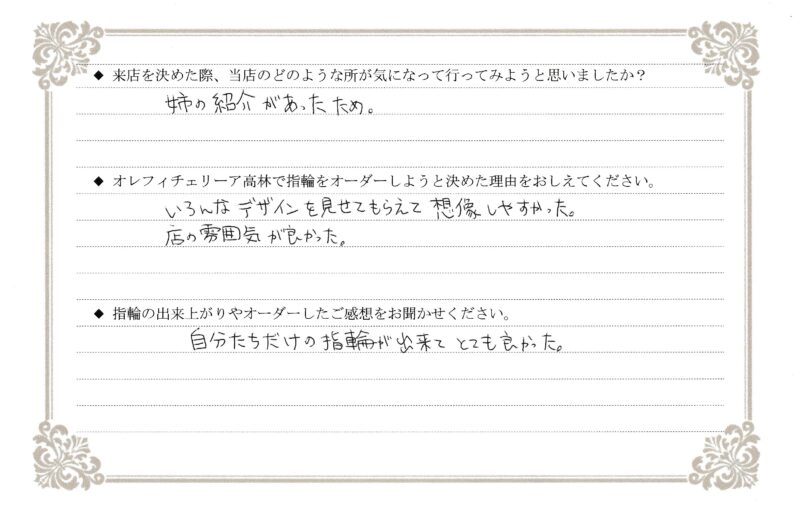 ◆ 来店を決めた際、当店のどのような所が気になって行ってみようと思いましたか？
姉の紹介があったため。
◆ オレフィチェリーア高林で指輪をオーダーしようと決めた理由をおしえてください。
いろんなデザインを見せてもらえて想像しやすかった。
店の雰囲気が良かった。
◆ 指輪の出来上がりやオーダーしたご感想をお聞かせください。
自分たちだけの指輪が出来てとても良かった。